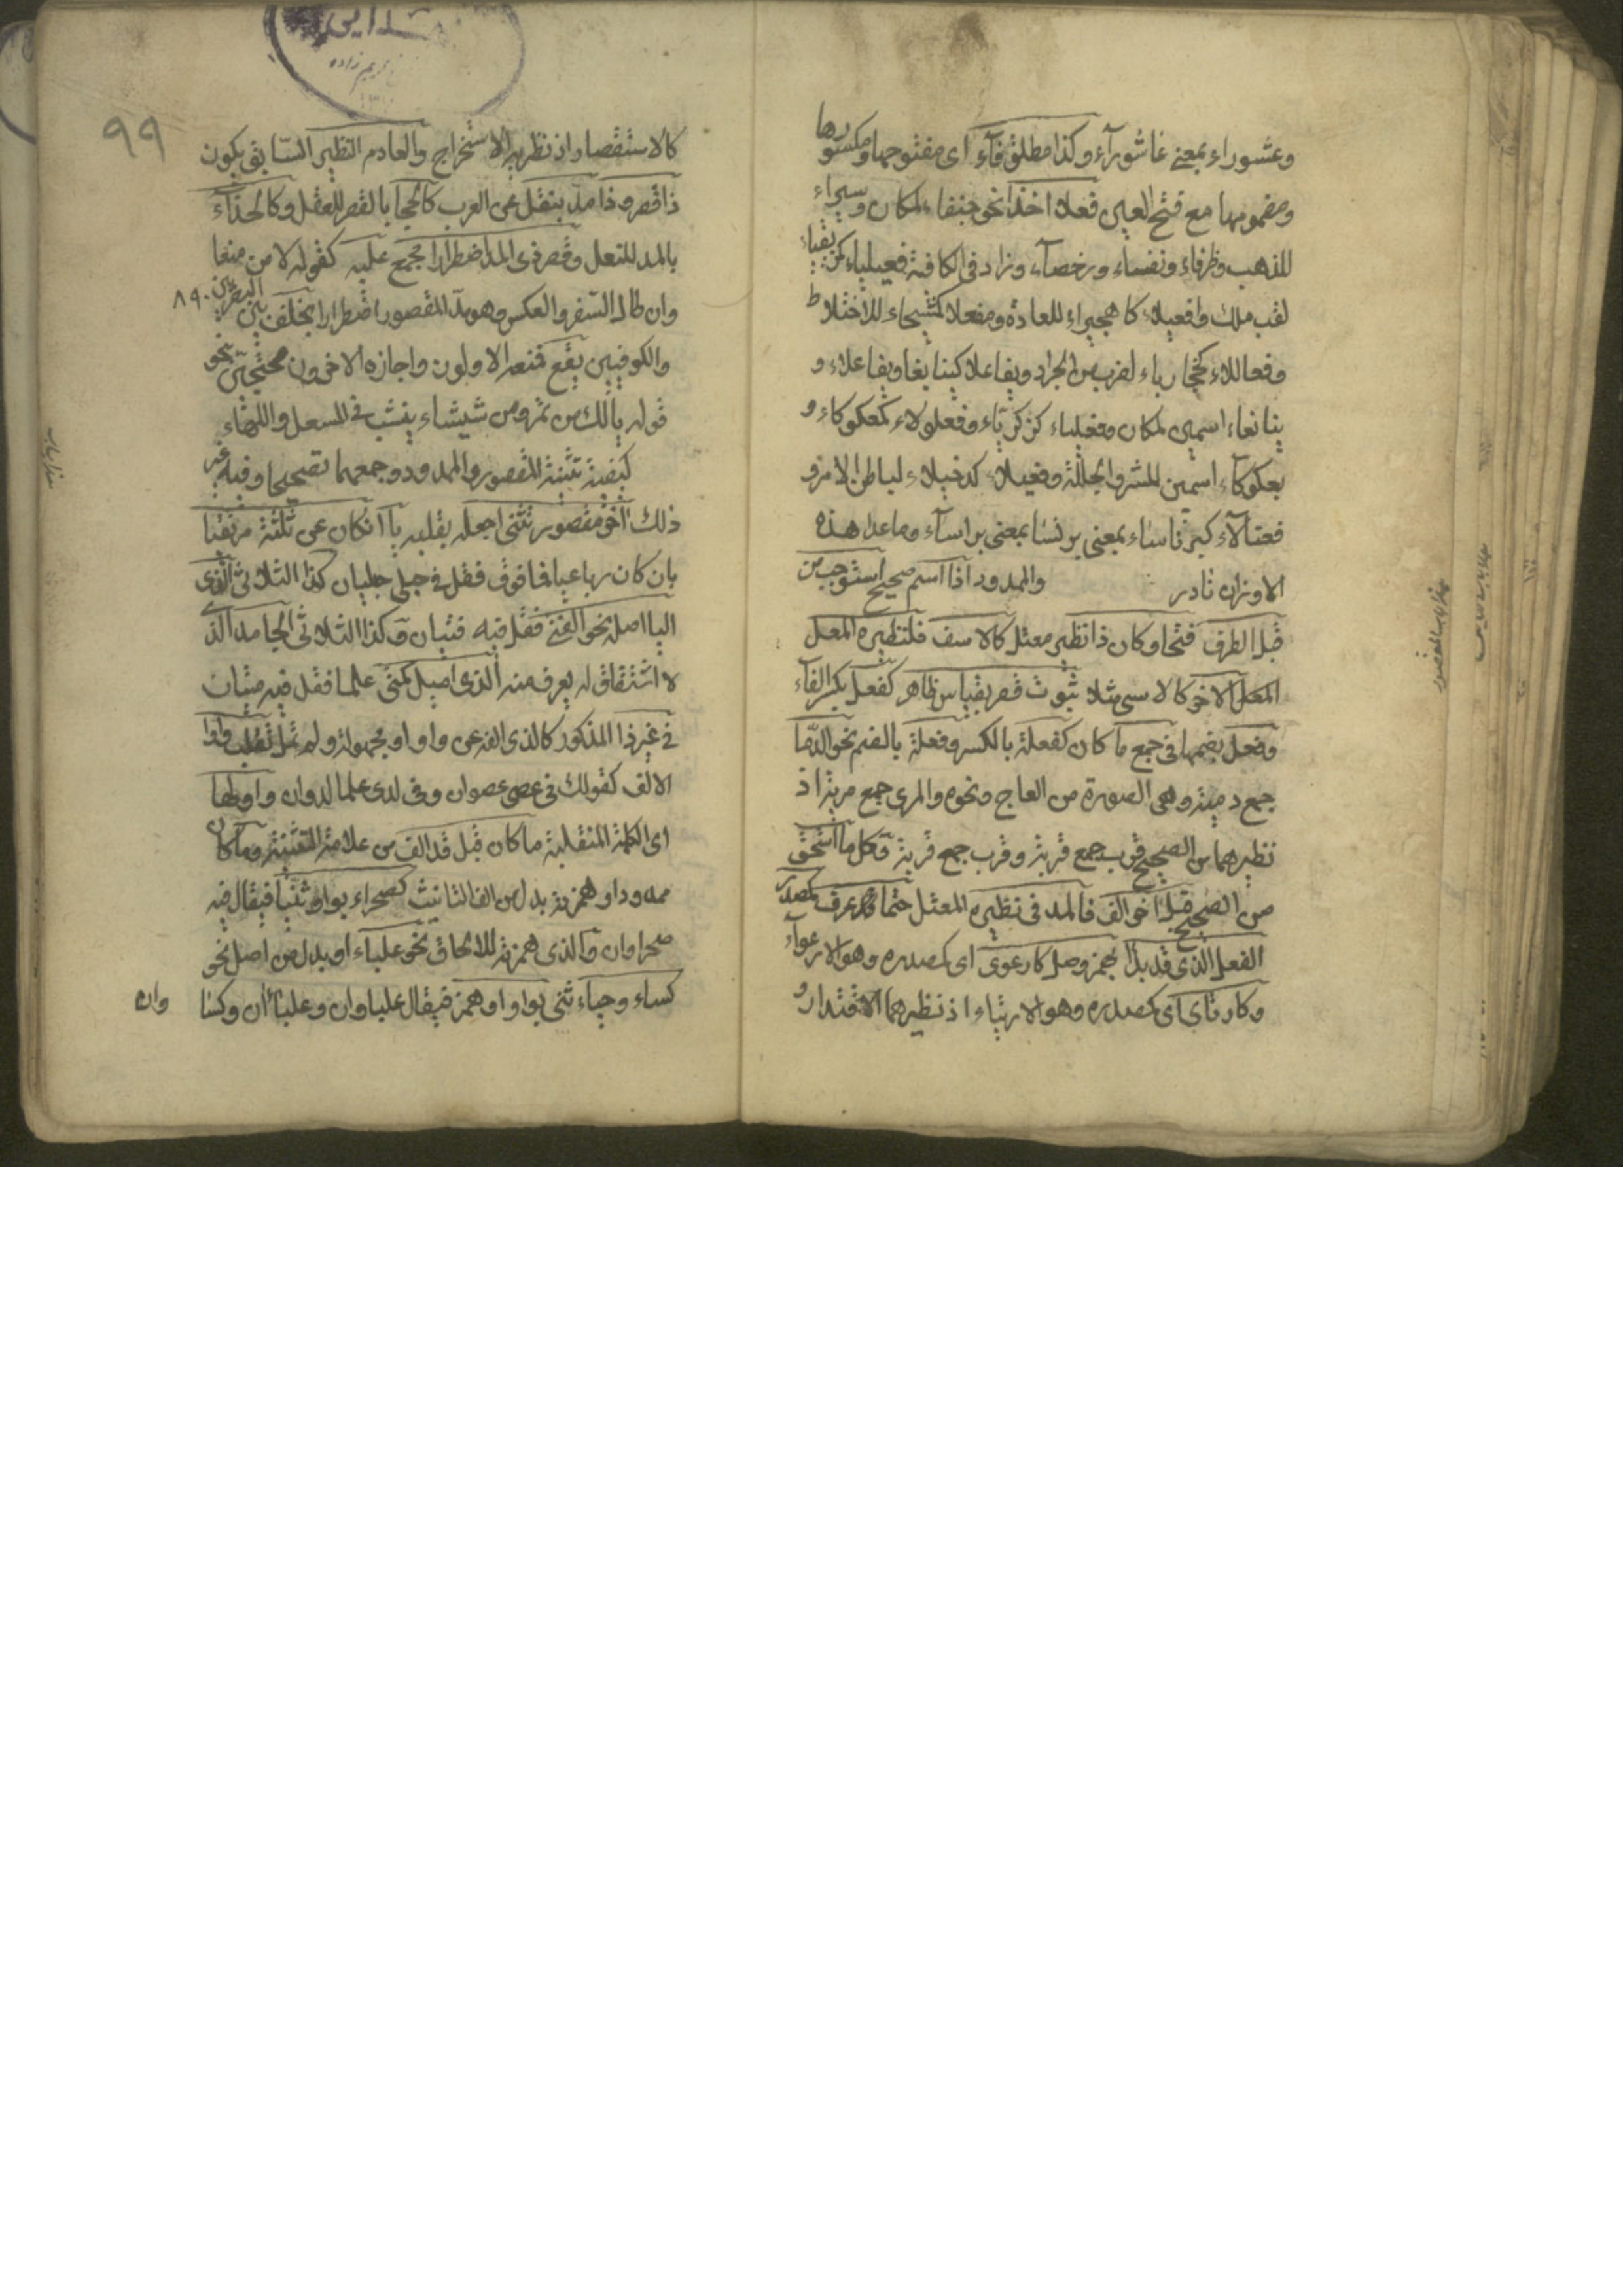 وعشوراء بمعنى عاشورآء وكذا مطلق فآء اى مفتوحها ومكسورها
ومضمومها مع فتح العين فعلاء اخذا نحو جنفاء لمكان وسيراء
للذهب وظرفاء ونفساء ورخصآء وزاد فى الكافية فعيلياء كمزيقياء
لقب ملك وافعيلاء كاهجيراء للعادة ومفعلاء كمشيحاء للاختلاط
وفعاللاء كخجادباء لضرب من الجراد ويفاعلاء كينابعا ويفاعلاء و
ينابعاء اسمين لمكان وفعلياء كزكرياء وفعلولاء كمعكوكاء و
بعكوكآء اسمين للشر والجلبة وفعيلاء كدخيلاء لباطن الامر و
فعنالاء كبرناساء بمعنى برنسا بمعنى براساء وماعدا هذه
الاوزان نادر والممدود اذا اسم صحيح استوجب من
قبل الطرف فتحا وكان ذا نظير معتل كالاسف فلنظيره المعل
المعل الاخر كالاسى مثلا ثبوت قصر بقياس ظاهر كفعل بكسر الفآء
وفعل بضمها فى جمع ما كان كفعلة بالكسر وفعلة بالضم نحو الدما
جمع دمية وهى الصورة من العاج ونحوه والمرى جمع مرية اذ
نظيرهما من الصحيح قرب جمع قربة وقرب جمع قربة وكل ما استحق
من الصحيح قبل اخر الف فالمد فى نظيره المعتل حتما قد عرف كمصدر
الفعل الذى قد بدا بهمز وصل كارعوى اى كمصدره وهو الارعوآء
وكارتاى اى كمصدره وهو الارتياء اذ نظيرهما الاقتدار و
٩٩
كالاستقصاء اذ نظيره الاستخراج والعادم النظير السابق يكون
ذا قصر وذا مد بنقل عن العرب كالحجا بالقصر للعقل وكالحذآء
بالمد للنعل وقصر ذى المد اضطرارا مجمع عليه كقوله لا بد من صنعا
وان طال السفر والعكس وهو مد المقصور اضطرارا بخلف بين البصريين
٨٩٠
والكوفيين يقع فمنعه الاولون واجازه الاخرون محتجين بنحو
قوله يالك من تمر ومن شيشاء ينشب فى المسعل واللهاء
كيفية تثنية المقصور والممدود وجمعهما تصحيحا وفيه غير
ذلك اخر مقصور تثنى اجعله بقلبه يآ ان كان عن ثلثة مرتقيا
بان كان رباعيا فما فوق فقل فى حبلى حبليان كذا الثلاثى الذى
اليا اصله نحو الفتى فقل فيه فتيان وكذا الثلاثى الجامد الذى
لا اشتقاق له يعرف منه الذى اميل كمتى علما فقل فيه متيان
فى غير ذا المذكور كالذى الفه عن واو او مجهولة ولم تمل تقلب واوا
الالف كقولك فى عصى عصوان وفى لدى علما لدوان واولها
اى الكلمة المنقلبة ما كان قبل قد الف من علامة التثنية وما كان
ممدودا وهمزته بدل من الف التانيث كصحراء بواو ثنيا فيقال فيه
صحراوان والذى همزته للالحاق نحو علباء او بدل من اصل نحو
كساء وحياء ثنى بواو او همز فيقال علباوان وعلباأن وكسا
وان